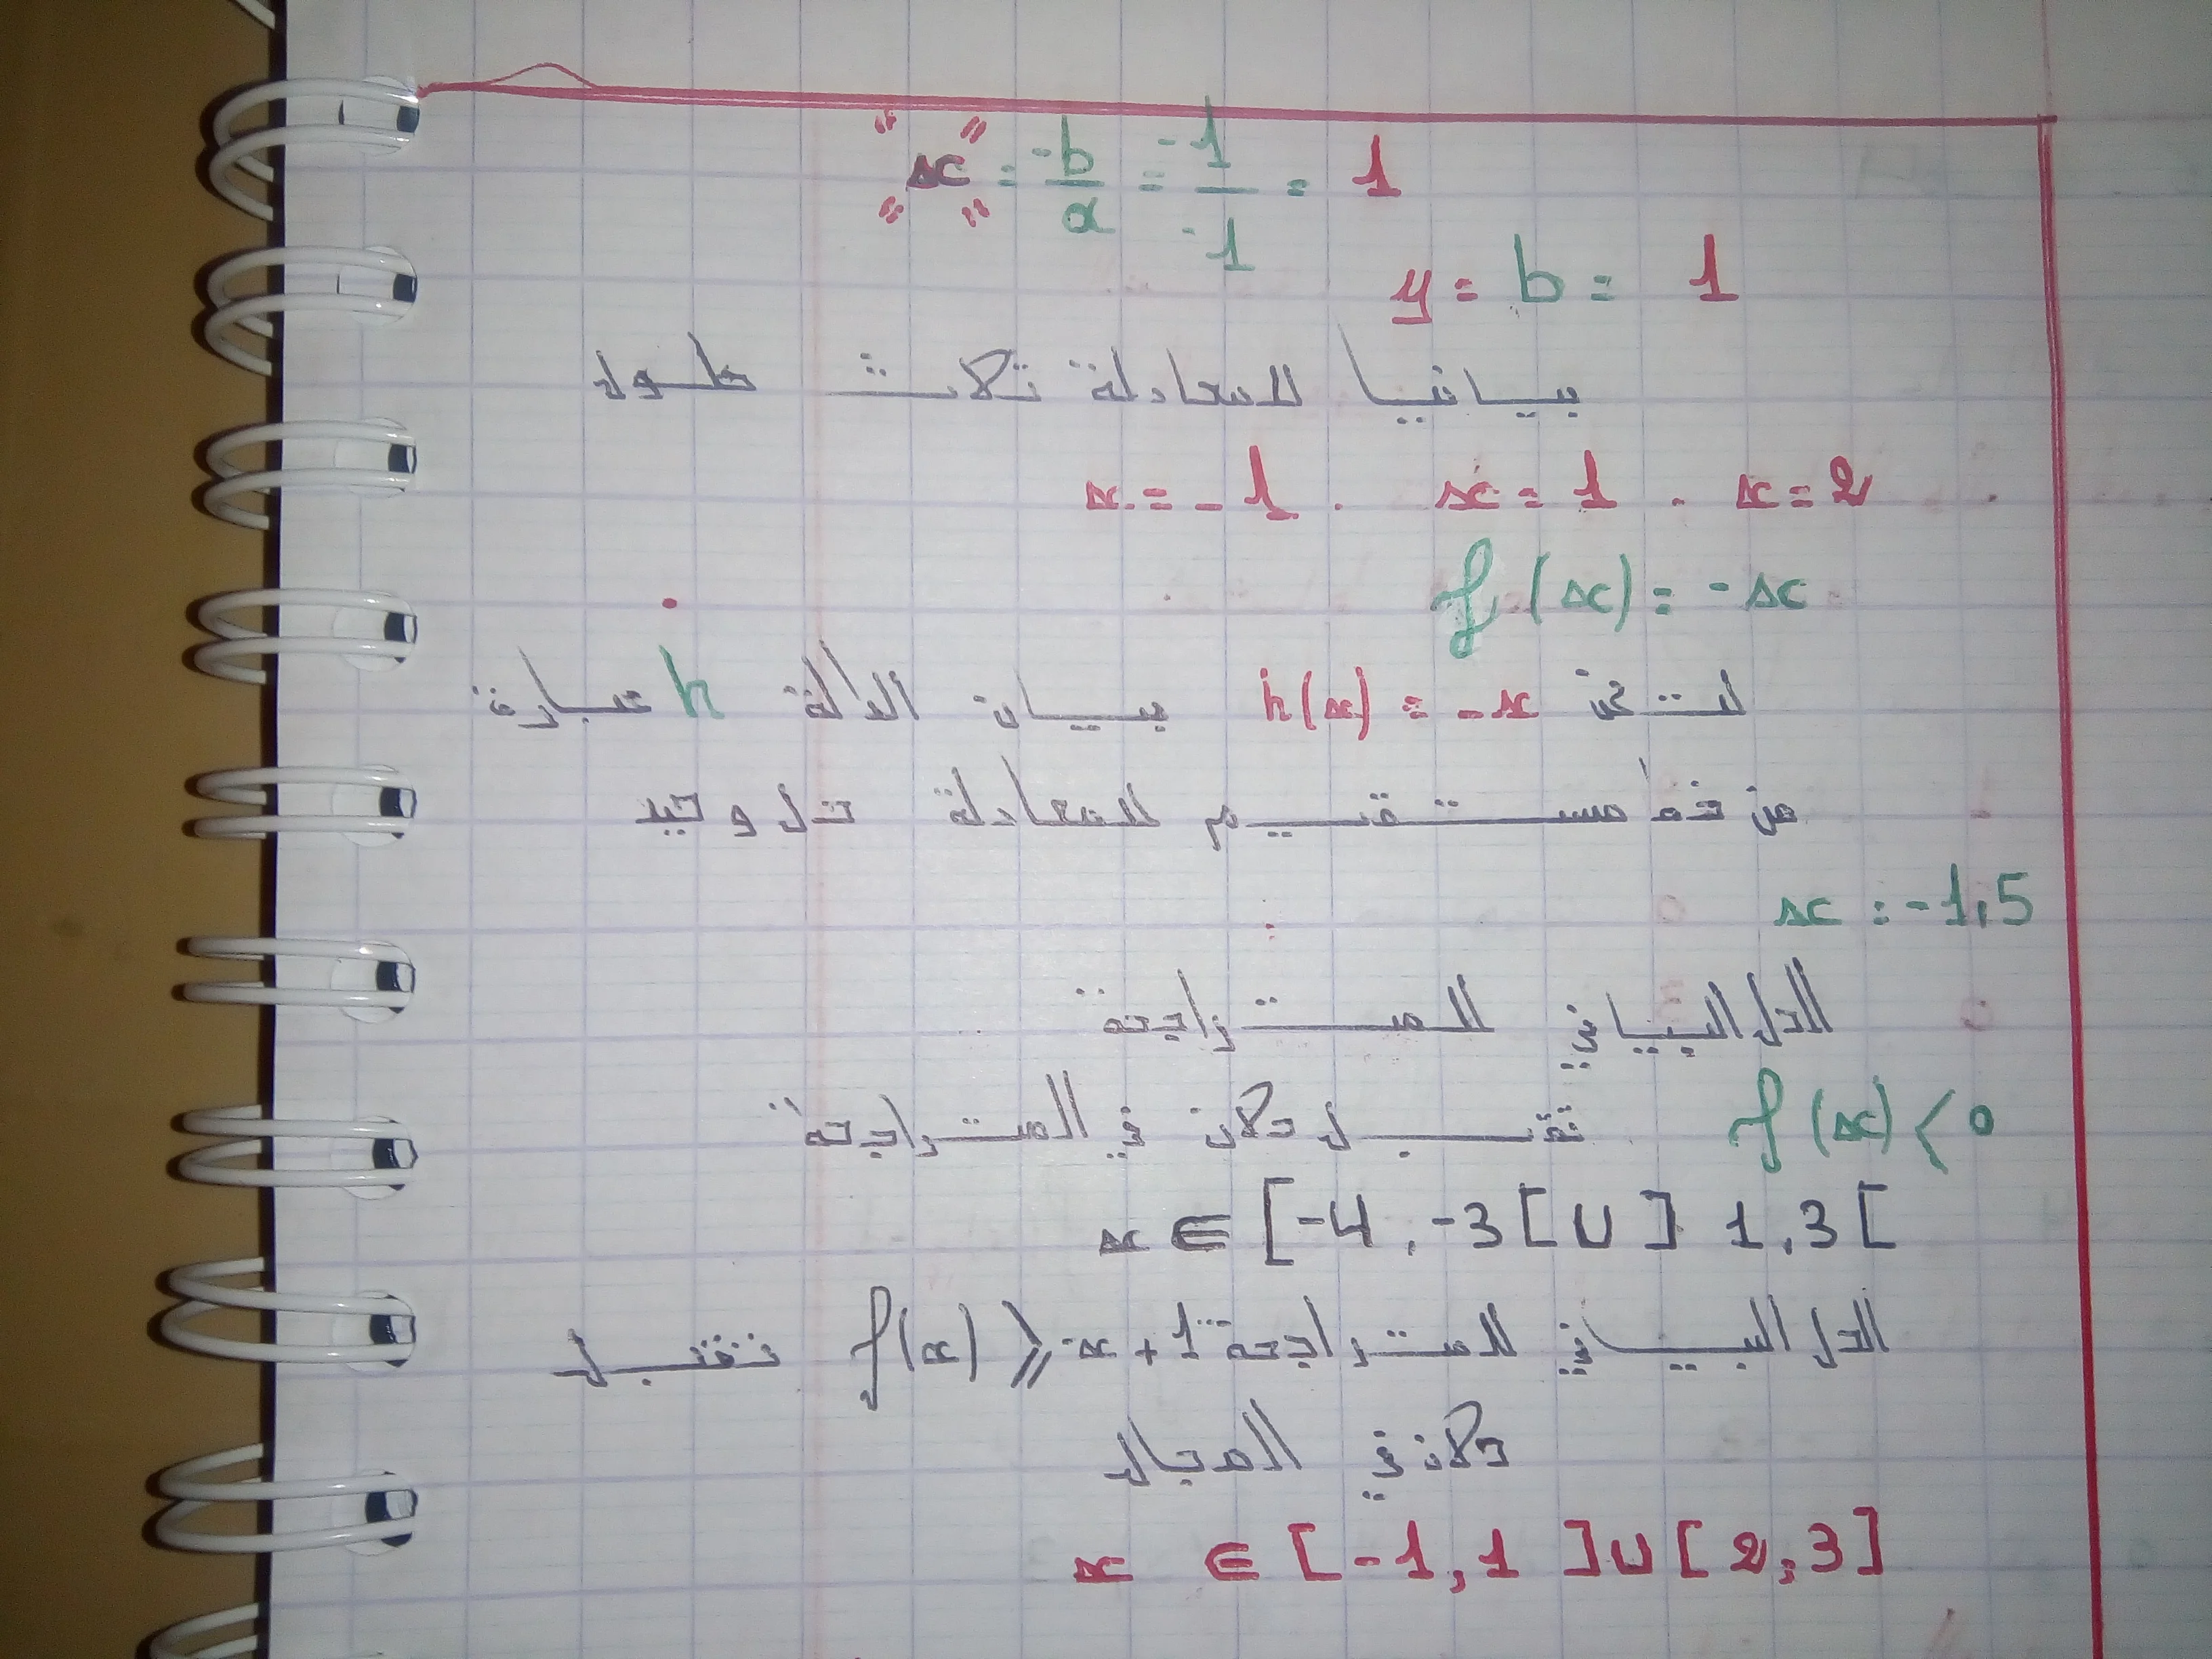 "x" = -b/a = -1/-1 = 1
y = b = 1
بيانيا للمعادلة ثلاث حلول
x = -1 . x = 1 . x = 2
f(x) = -x
h(x) = -x بيان الدالة h عبارة
عن خط مستقيم للمعادلة حل وحيد
x = -1,5
الحل البياني للمتراجحة
f(x) < 0 تقبل حلان في المتراجحة
x ∈ [-4, -3[ ∪ ] 1, 3 [
الحل البياني للمتراجحة f(x) ⩾ -x + 1 تقبل
حلان في المجال
x ∈ [-1, 1] ∪ [2, 3]